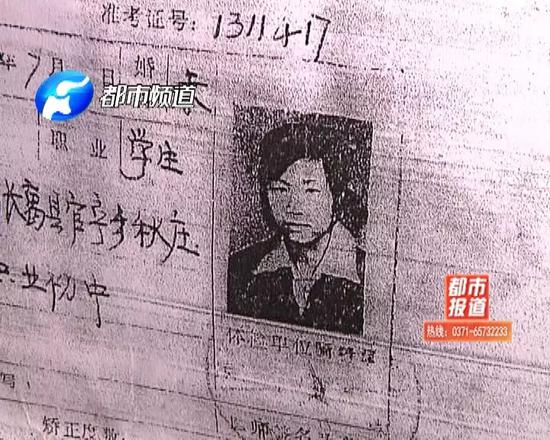 准考证号：1311417
月 日 婚
都市频道
职 业 学生
长葛县官亭乡秋庄
业初中
都市
报道
热线：0371-65732233
体检单位
写：
矫正度数：